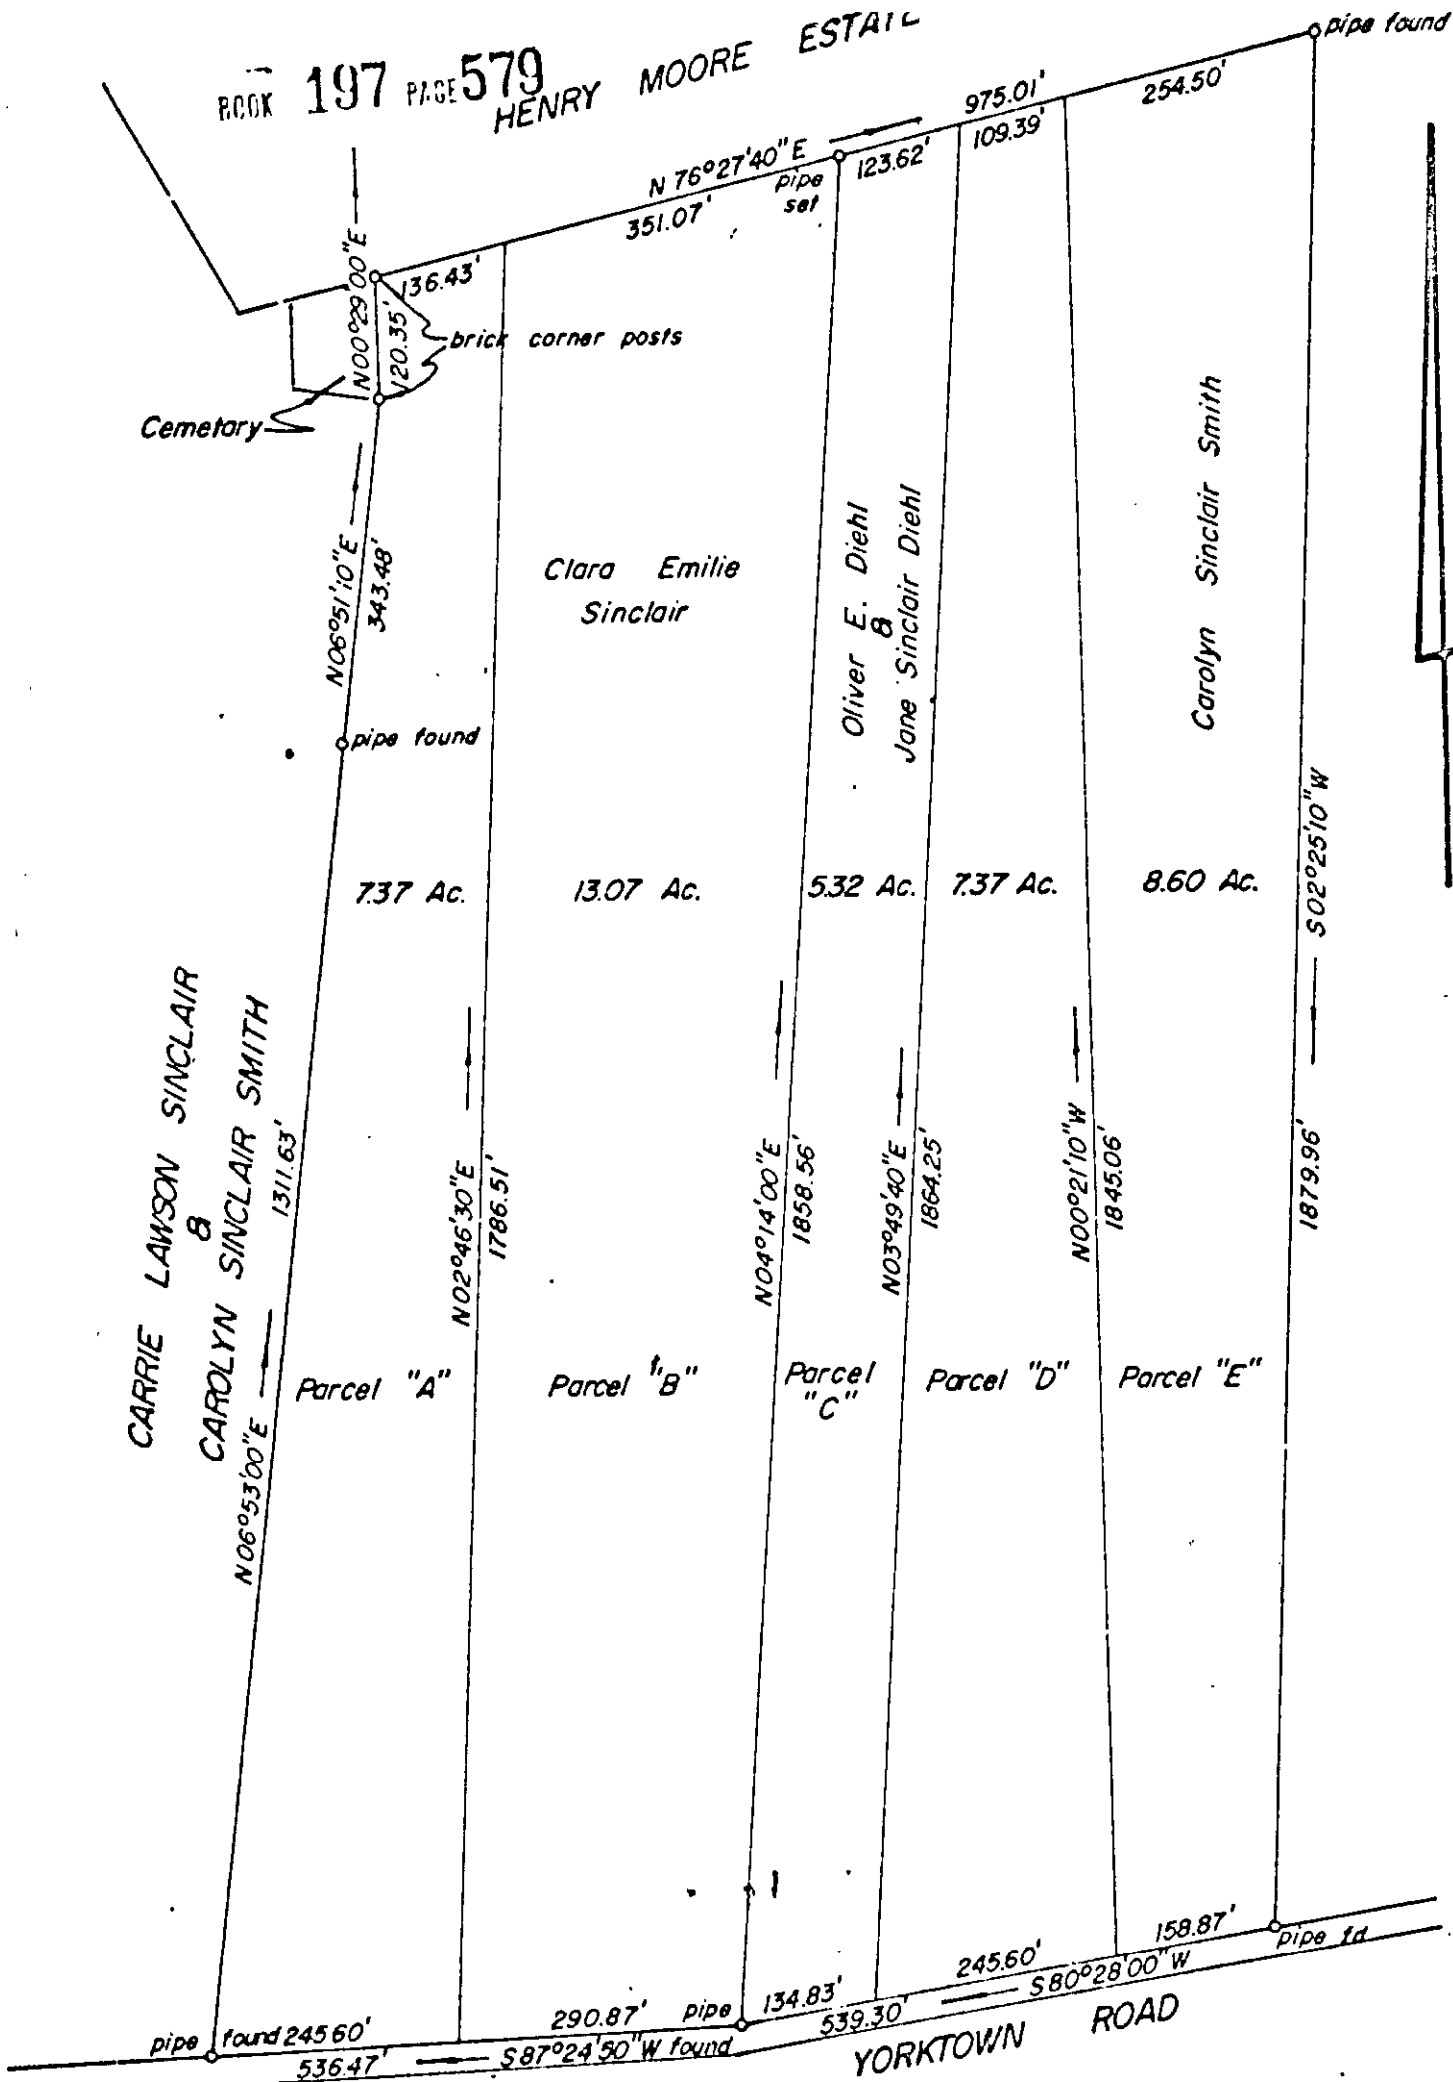 BOOK 197 PAGE 579
HENRY MOORE ESTATE
pipe found
975.01'
254.50'
109.39'
123.62'
N 76°27'40"E
pipe
set
351.07'
136.43'
N00°29'00"E
120.35'
brick corner posts
Cemetary
N06°51'10"E
343.48'
pipe found
Clara Emilie
Sinclair
Oliver E. Diehl
&
Jane Sinclair Diehl
Carolyn Sinclair Smith
S02°25'10"W
1879.96'
7.37 Ac.
13.07 Ac.
5.32 Ac.
7.37 Ac.
8.60 Ac.
CARRIE LAWSON SINCLAIR
&
CAROLYN SINCLAIR SMITH
1311.63'
N06°53'00"E
N02°46'30"E
1786.51'
N04°14'00"E
1858.56'
N03°49'40"E
1864.25'
N00°21'10"W
1845.06'
Parcel "A"
Parcel "B"
Parcel
"C"
Parcel "D"
Parcel "E"
158.87'
pipe fd.
245.60'
S80°28'00"W
134.83'
539.30'
290.87'
pipe
found
pipe found
245.60'
536.47'
S87°24'50"W
YORKTOWN ROAD